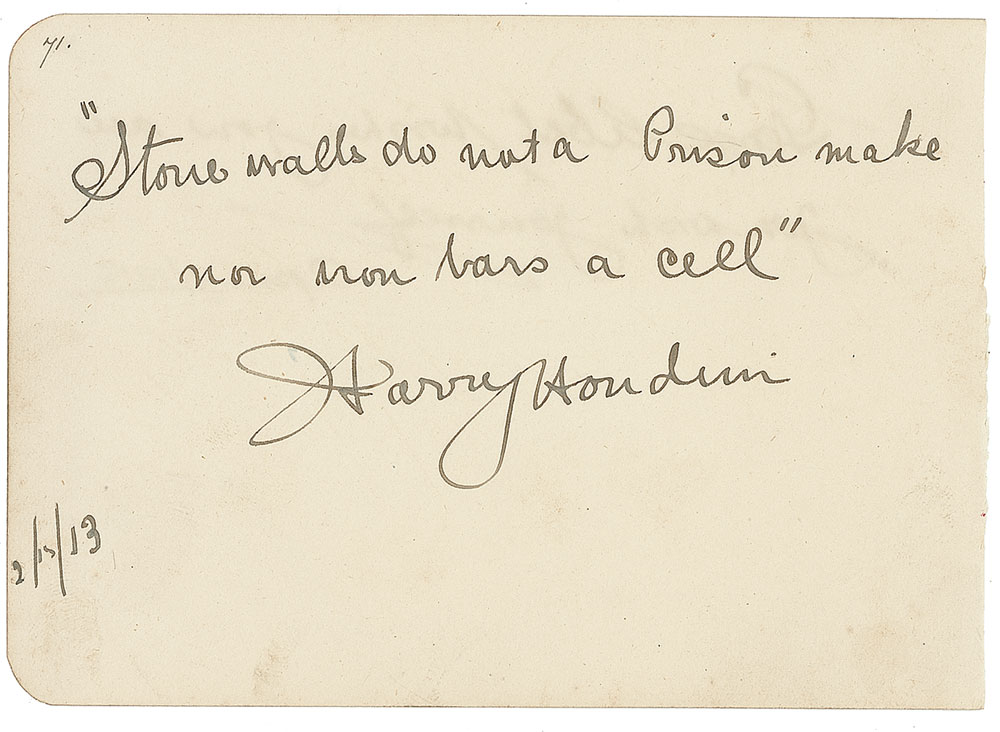 71.
"Stone walls do not a Prison make
nor iron bars a cell"
Harry Houdini
2/12/13